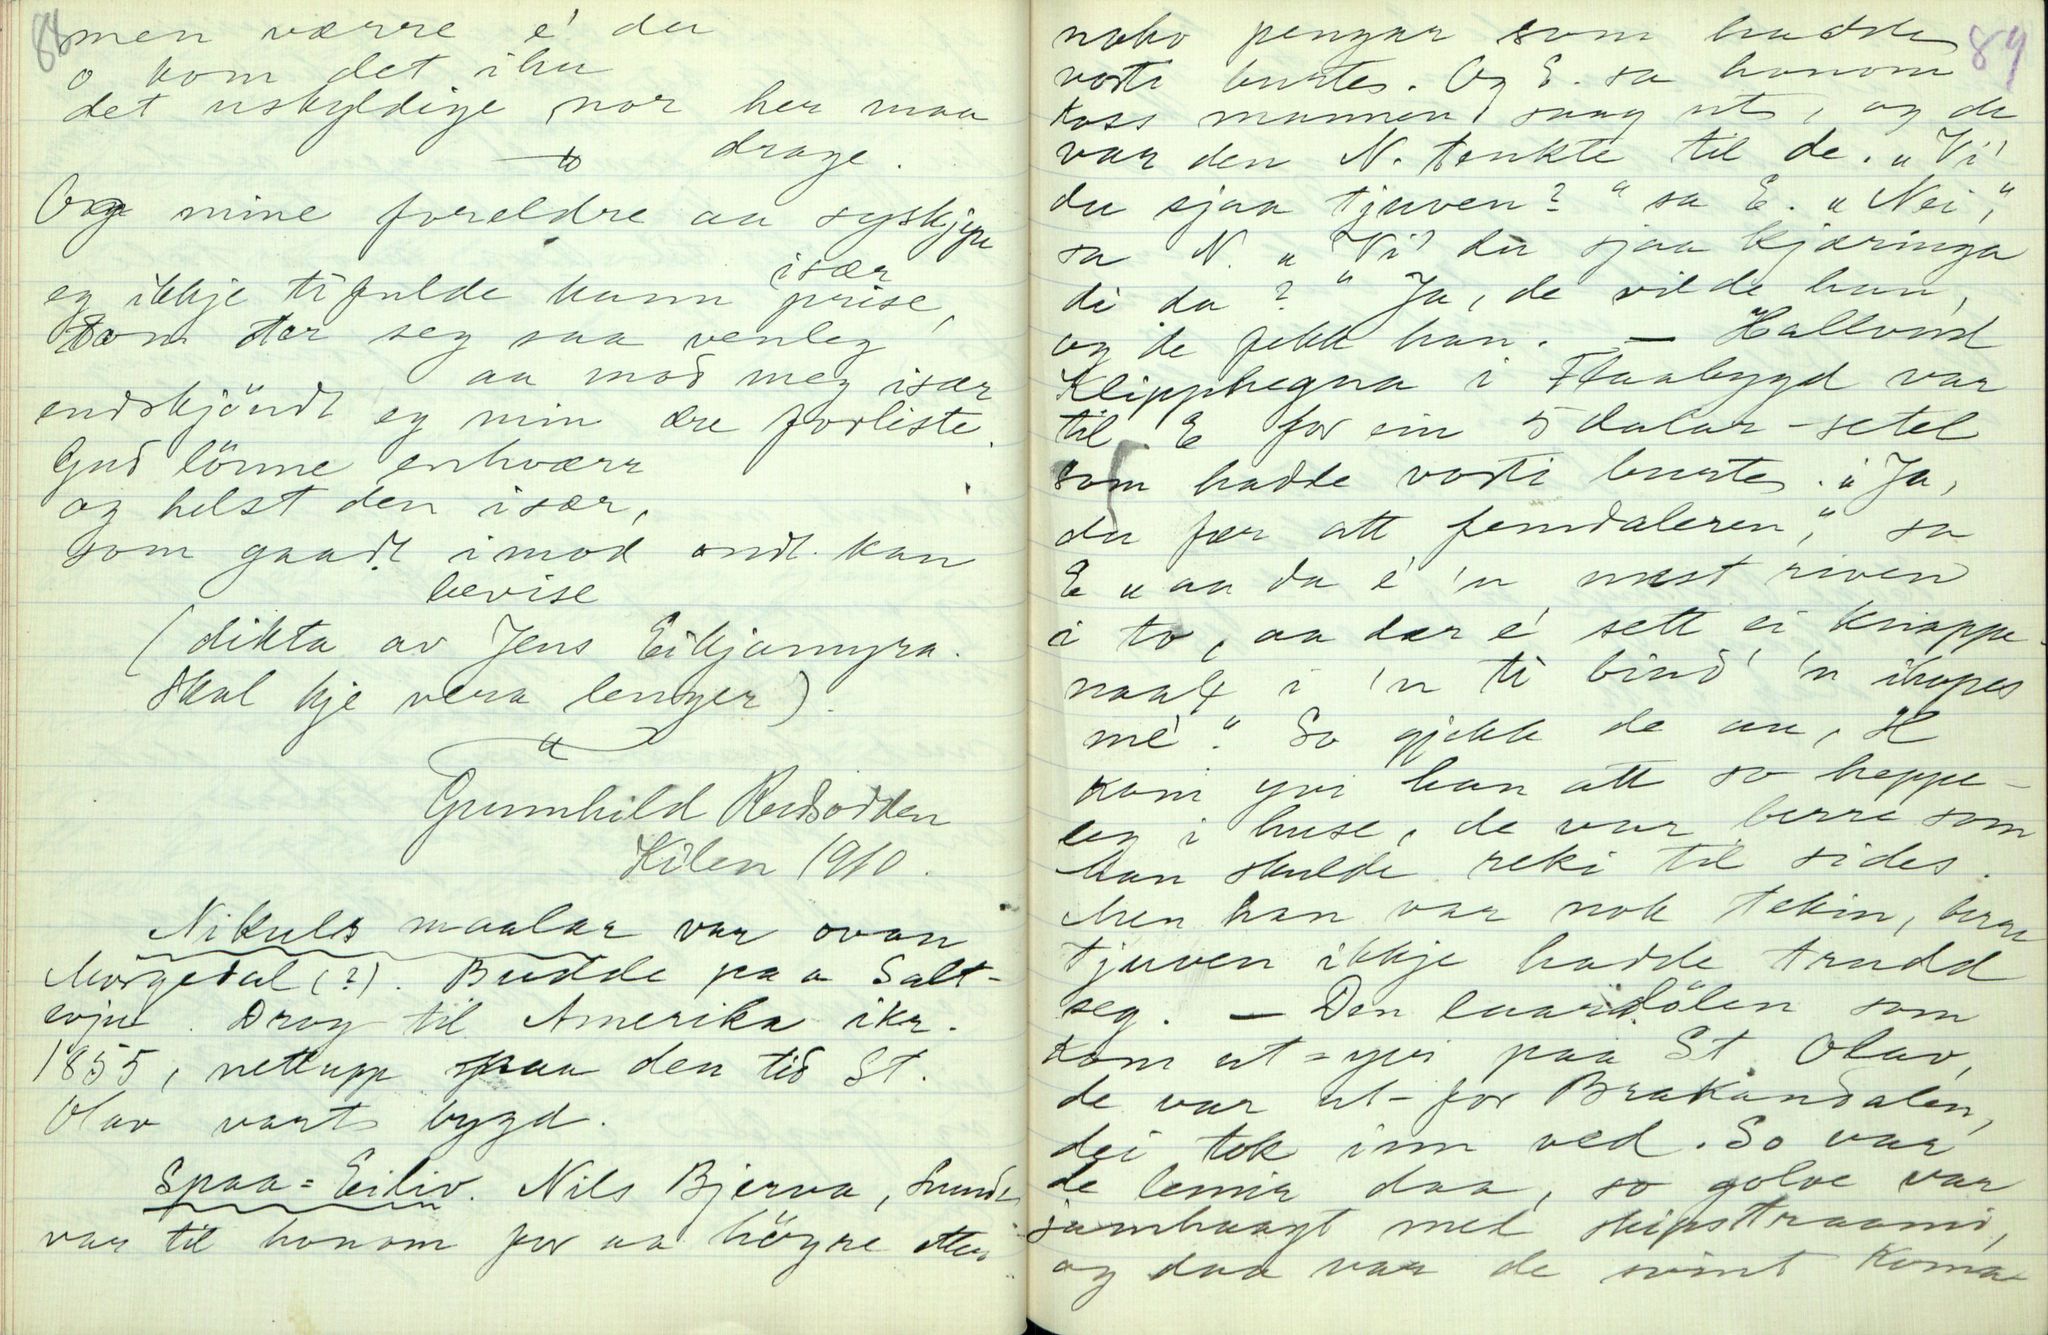 88
men værre e' du
o kom det ihu
det uskyldige nor her maa
drage.
Og mine foreldre aa syskjen
især
eg ikkje tifulde kann prise,
som ter seg saa venleg
aa mod meg især
endskjöndt eg min ære forliste.
Gud lönne enhværr
og helst den især,
som gaadt imod ondt kan
bevise
(dikta av Jens Eikjamyra.
Skal kje vera lenger).
Gunnhild
Kilen 1910.
Nikuls maalar var ovan
Morgedal (?). Budde paa Salt-
evju. Drog til Amerika ikr.
1855, nettupp paa den tid St.
Olav vart bygd.
Spaa-Eiliv. Nils Bjerva,
var til honom for aa höyre etter
89
noko pengar som hadde
vorti burte. Og E. sa honom
koss mannen saag ut, og de
var den N. tenkte til de. "Vi'
du sjaa tjuven?" sa E. "Nei,"
sa N. "Vi' du sjaa kjæringa
di da?" Ja, de vilde han,
og de fekk han. — Hallvord
Klipphegna i Flaabygd var
til E for ein 5 dalar-setel
som hadde vorti burte. "Ja,
du fær att femdaleren," sa
E "aa da e' 'n mest riven
i to, aa dær e' sett ei knappe-
naal i 'n ti bind' 'n ihopes
me'." So gjekk de au, H
kom yvi han att so heppe-
leg i huse, de var berre som
han skulde reki til sides.
Men han var nok tekin, berre
tjuven ikkje hadde trudd
seg. — Den laardölen som
kom ut-yvi paa St. Olav,
de var ut-for Brakandalen,
dei tok inn ved. So var
de lemir daa, so golve var
jamhaagt med skipstraami,
og daa var de svint koma